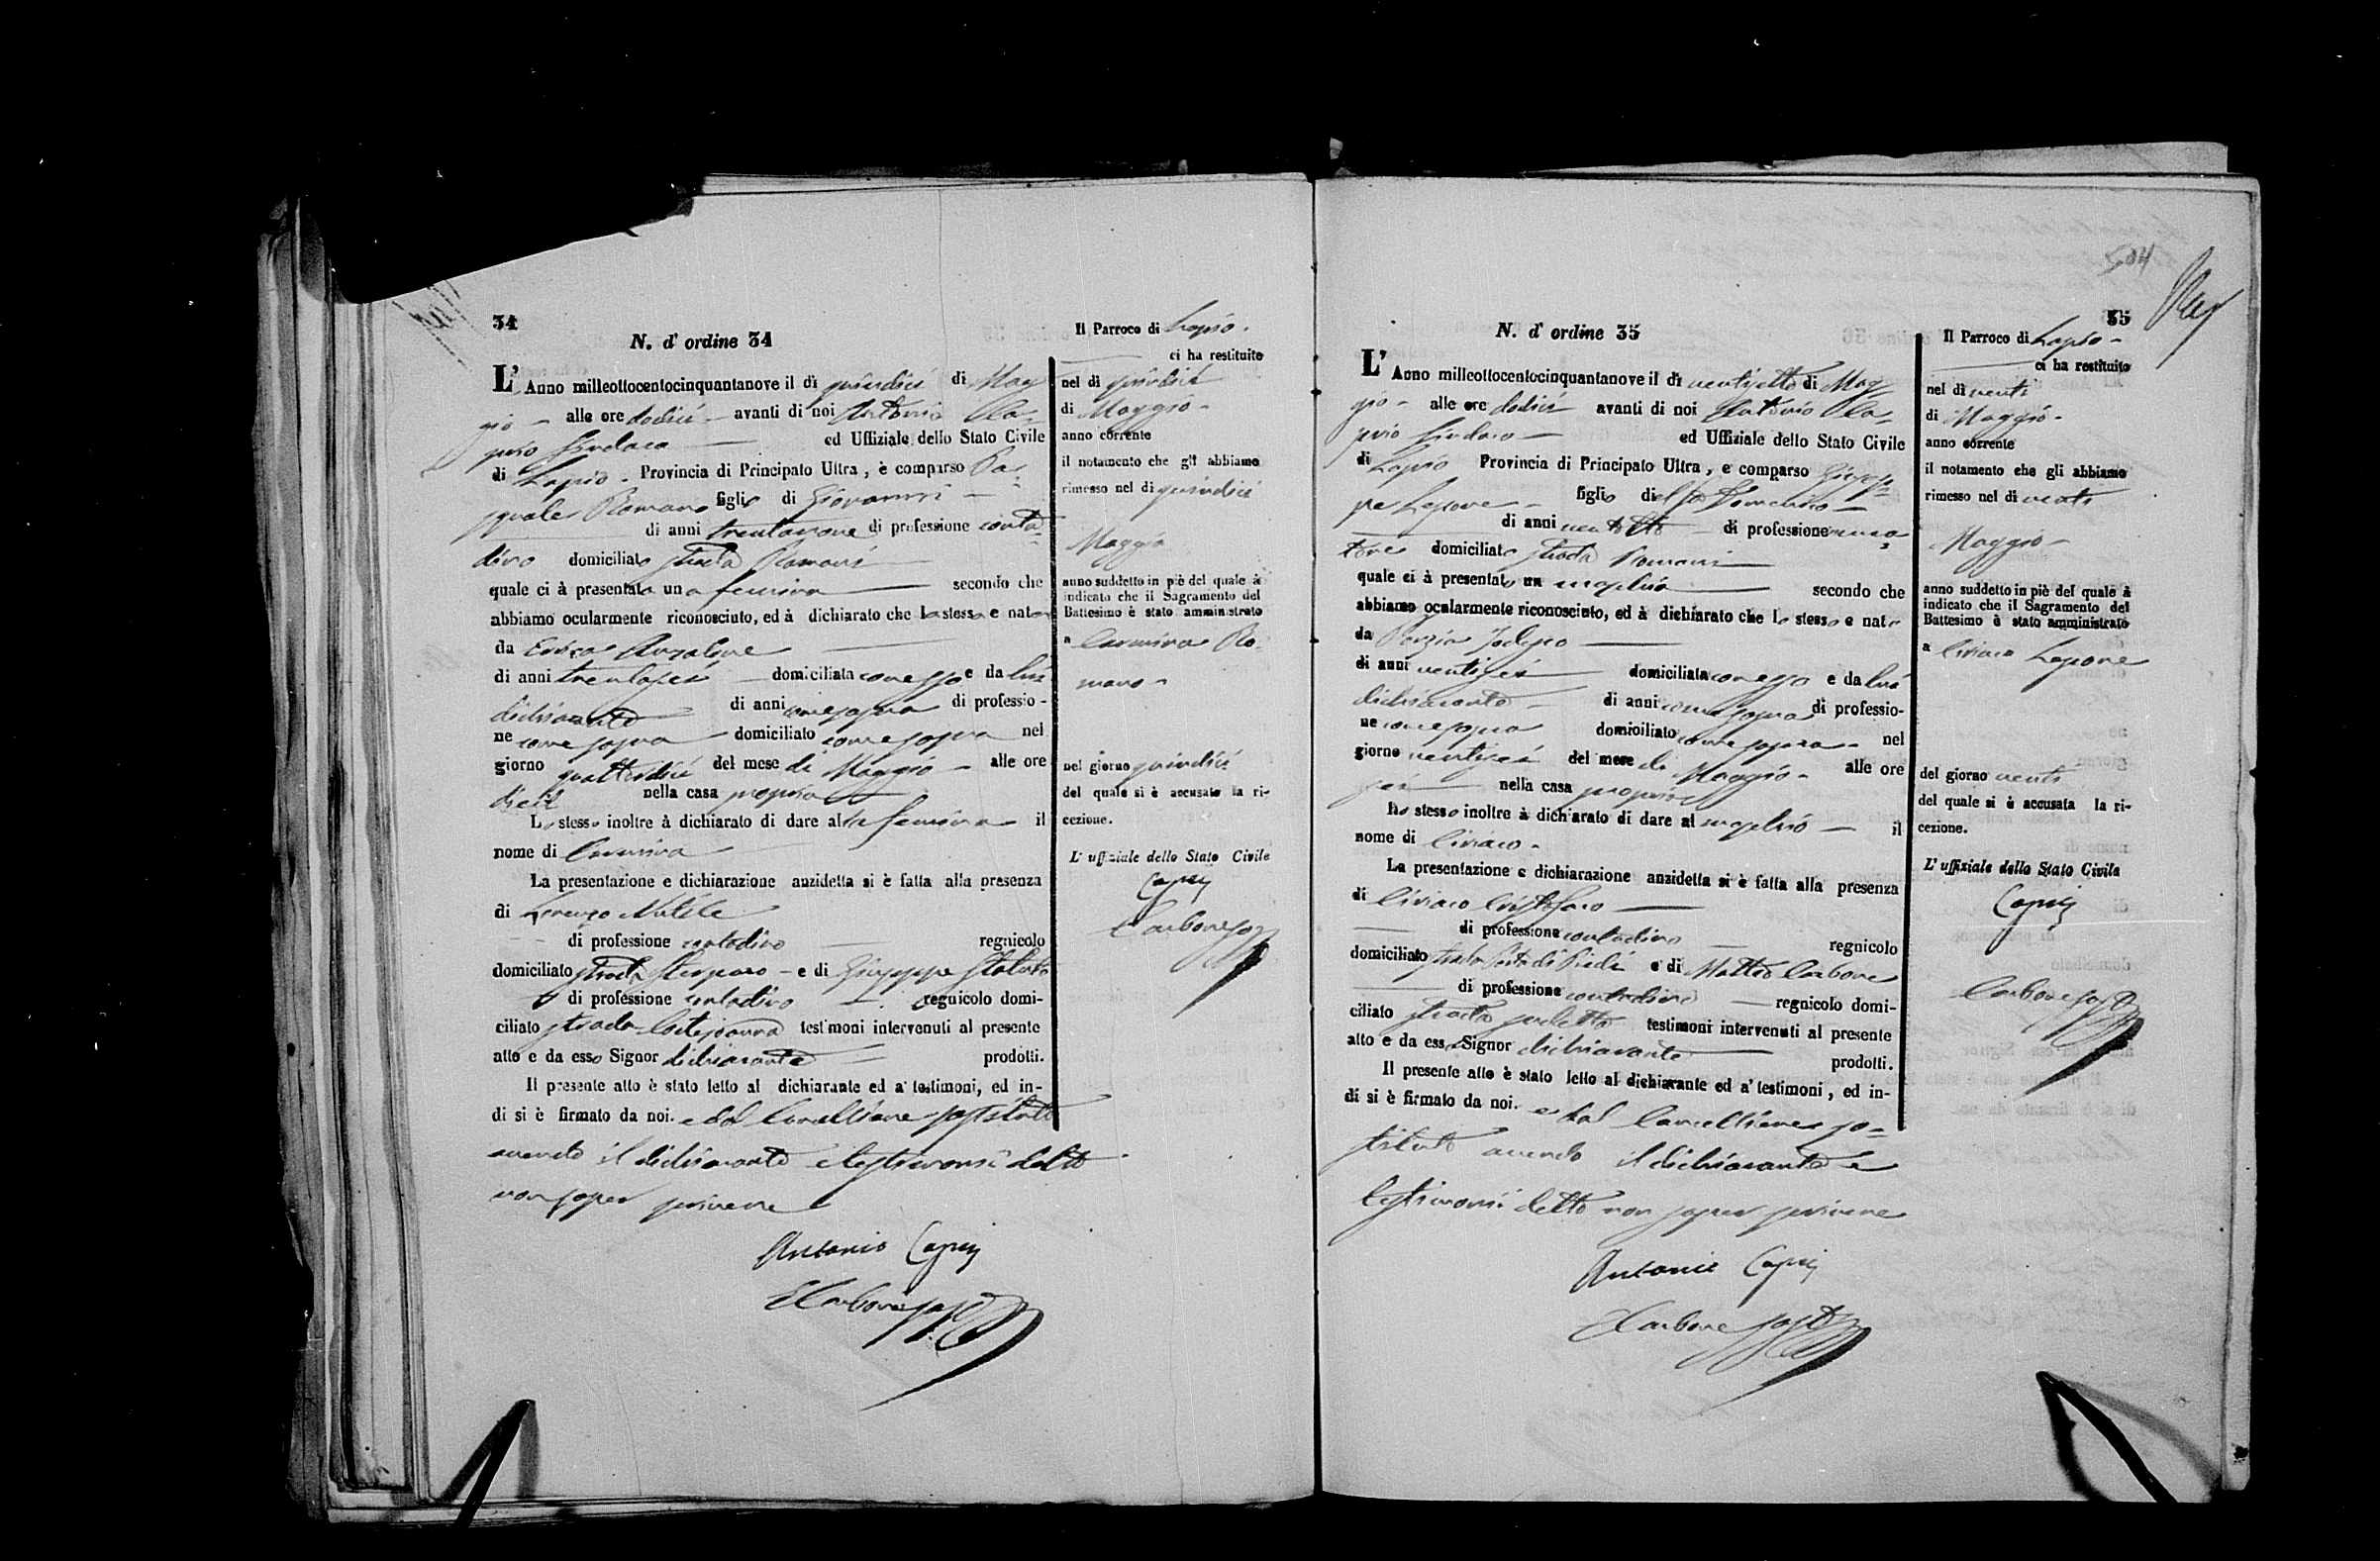 34
N. d' ordine 34
L' Anno milleottocentocinquantanove il dì quindici di Mag
gio - alle ore dodici - avanti di noi Antonio Ca-
prio Sindaco ed Uffiziale dello Stato Civile
di Lapio - Provincia di Principato Ultra, è comparso Pa-
squale Romano figlio di Giovanni -
di anni trentanove di professione conta-
dino domiciliato strada Romani
quale ci à presentata una femina secondo che
abbiamo ocularmente riconosciuto, ed à dichiarato che la stessa e nata
da Errica Anzalone
di anni trentasei - domiciliata con esso e da lui
dichiarante di anni come sopra di professio-
ne come sopra domiciliato come sopra nel
giorno quattordici del mese di Maggio - alle ore
dieci nella casa propria
Lo stesso inoltre à dichiarato di dare alla femina il
nome di Carmina
La presentazione e dichiarazione anzidetta si è fatta alla presenza
di Lorenzo
di professione contadino regnicolo
domiciliato strada - e di Giuseppe
di professione contadino regnicolo domi-
ciliato strada testimoni intervenuti al presente
atto e da esso Signor dichiarante prodotti.
Il presente atto è stato letto al dichiarante ed a' testimoni, ed in-
di si è firmato da noi. e dal Cancelliere sostituto
avendo il dichiarante e testimoni detto
non saper scrivere
Antonio Caprio
Carbone sost
Il Parroco di Lapio -
ci ha restituito
nel di quindici
di Maggio -
anno corrente
il notamento che gli abbiamo
rimesso nel di quindici
Maggio
anno suddetto in piè del quale à
indicato che il Sagramento del
Battesimo è stato amministrato
a Carmina Ro-
mano -
nel giorno quindici
del quale si è accusata la ri-
cezione.
L' uffiziale dello Stato Civile
Caprio
Carbone sost
504
35
N. d' ordine 35
L' Anno milleottocentocinquantanove il dì ventisette di Mag
gio - alle ore dodici avanti di noi Antonio Ca-
prio Sindaco ed Uffiziale dello Stato Civile
di Lapio Provincia di Principato Ultra, e comparso Giusep-
pe Lepore - figlio del fu Domenico -
di anni ventotto di professione mura-
tore domiciliato strada Romani
quale ci à presentato un maschio secondo che
abbiamo ocularmente riconosciuto, ed à dichiarato che lo stesso e nato
da Porzia
di anni ventisei domiciliata con esso e da lui
dichiarante di anni come sopra di professio-
ne come sopra domiciliato come sopra - nel
giorno ventisei del mese di Maggio - alle ore
sei nella casa propria
Lo stesso inoltre à dichiarato di dare al maschio - il
nome di Ciriaco -
La presentazione e dichiarazione anzidetta si è fatta alla presenza
di Ciriaco Cristofaro
di professione contadino regnicolo
domiciliato strada e di Matteo Carbone
di professione contadino regnicolo domi-
ciliato strada sudetta testimoni intervenuti al presente
atto e da esso Signor dichiarante prodotti.
Il presente atto è stato letto al dichiarante ed a' testimoni, ed in-
di si è firmato da noi. e dal Cancelliere so-
stituto avendo il dichiarante e
testimoni detto non saper scrivere
Antonio Caprio
Carbone sost
Il Parroco di Lapio -
ci ha restituito
nel dì venti
di Maggio -
anno corrente
il notamento che gli abbiamo
rimesso nel di venti
Maggio -
anno suddetto in piè del quale à
indicato che il Sagramento del
Battesimo è stato amministrato
a Ciriaco Lepore
del giorno venti
del quale si è accusata la ri-
cezione.
L' uffiziale dello Stato Civile
Caprio
Carbone sost